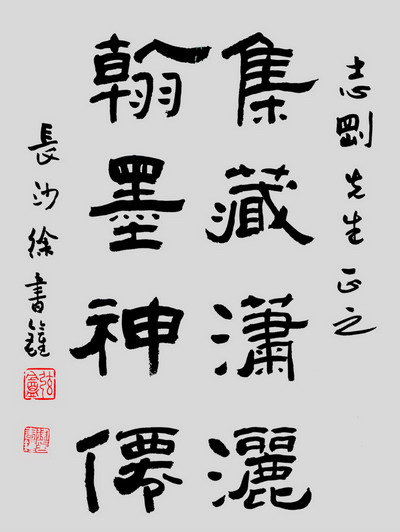 志剛先生正之
集藏瀟灑
翰墨神僊
長沙徐書